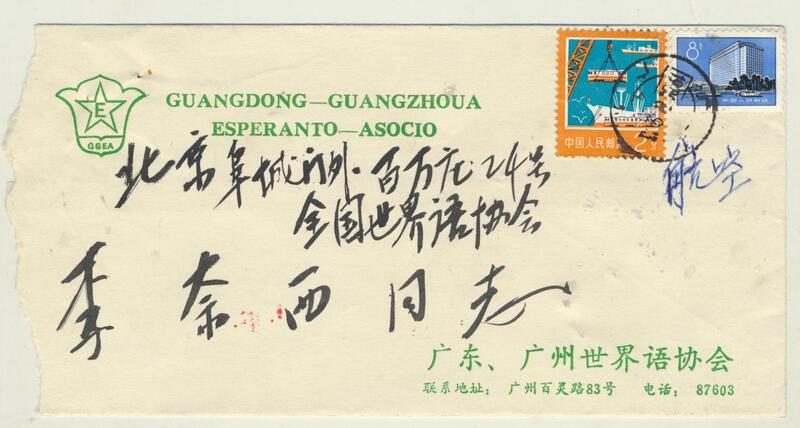 8分
中国人民邮政
中国人民邮政
2分
E
GGEA
GUANGDONG—GUANGZHOUA
ESPERANTO—ASOCIO
航空
北京阜城门外百万庄24号
全国世界语协会
李奈西同志
广东、广州世界语协会
联系地址: 广州百灵路83号 电话: 87603